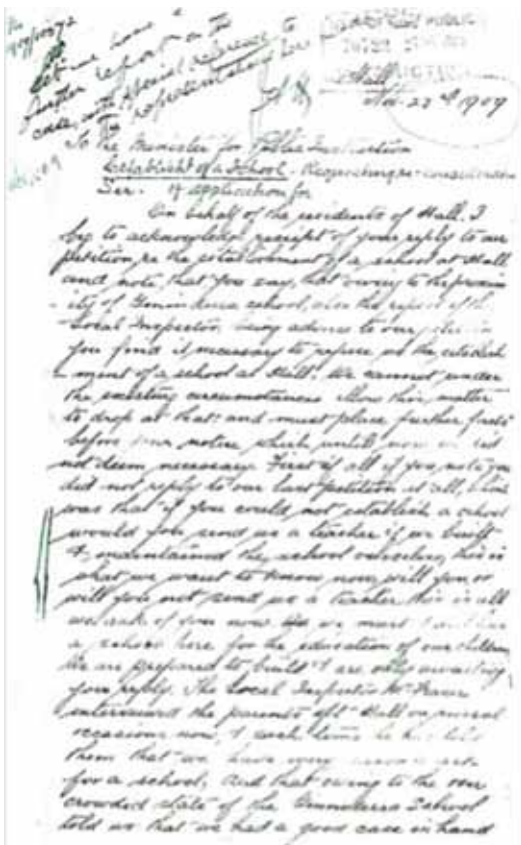 Let me have a
further report on the
case, with special reference to
the representations here
Hall
Nov. 22nd 1909
To the Minister for Public Instruction
Establisht of a School - Requesting re-consideration
Sir. of application for
On behalf of the residents of Hall. I
beg to acknowledge receipt of your reply to our
petition, re the establishment of a school at Hall
and note, that you say, that owing to the proxim
-ity of Gininderra school, also the report of the
Local Inspector, being adverse to our
you find it necessary to refuse us the establish
-ment of a school at Hall. We cannot under
the existing circumstances allow this matter
to drop at that: and must place further facts
before your notice which until now we did
not deem necessary. First of all if you note you
did not reply to our last petition at all,
was that if you could not establish a school
would you send us a teacher if we built
& maintained the school ourselves, this is
what we want to know now, will you or
will you not send us a teacher this is all
we ask of you now as we must
a school here for the education of our children
We are prepared to build & are only awaiting
your reply. The Local Inspector Mr
interviewed the parents of Hall on several
occasions now, & each time he has told
them that we have very
for a school, and that owing to the over
crowded state of the Ginninderra School
told us that we had a good case in hand